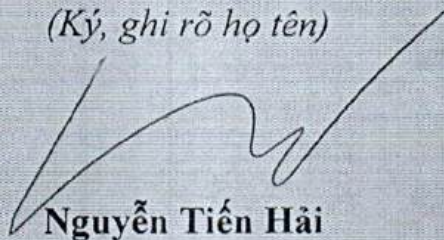 (Ký, ghi rõ họ tên)
Nguyễn Tiến Hải